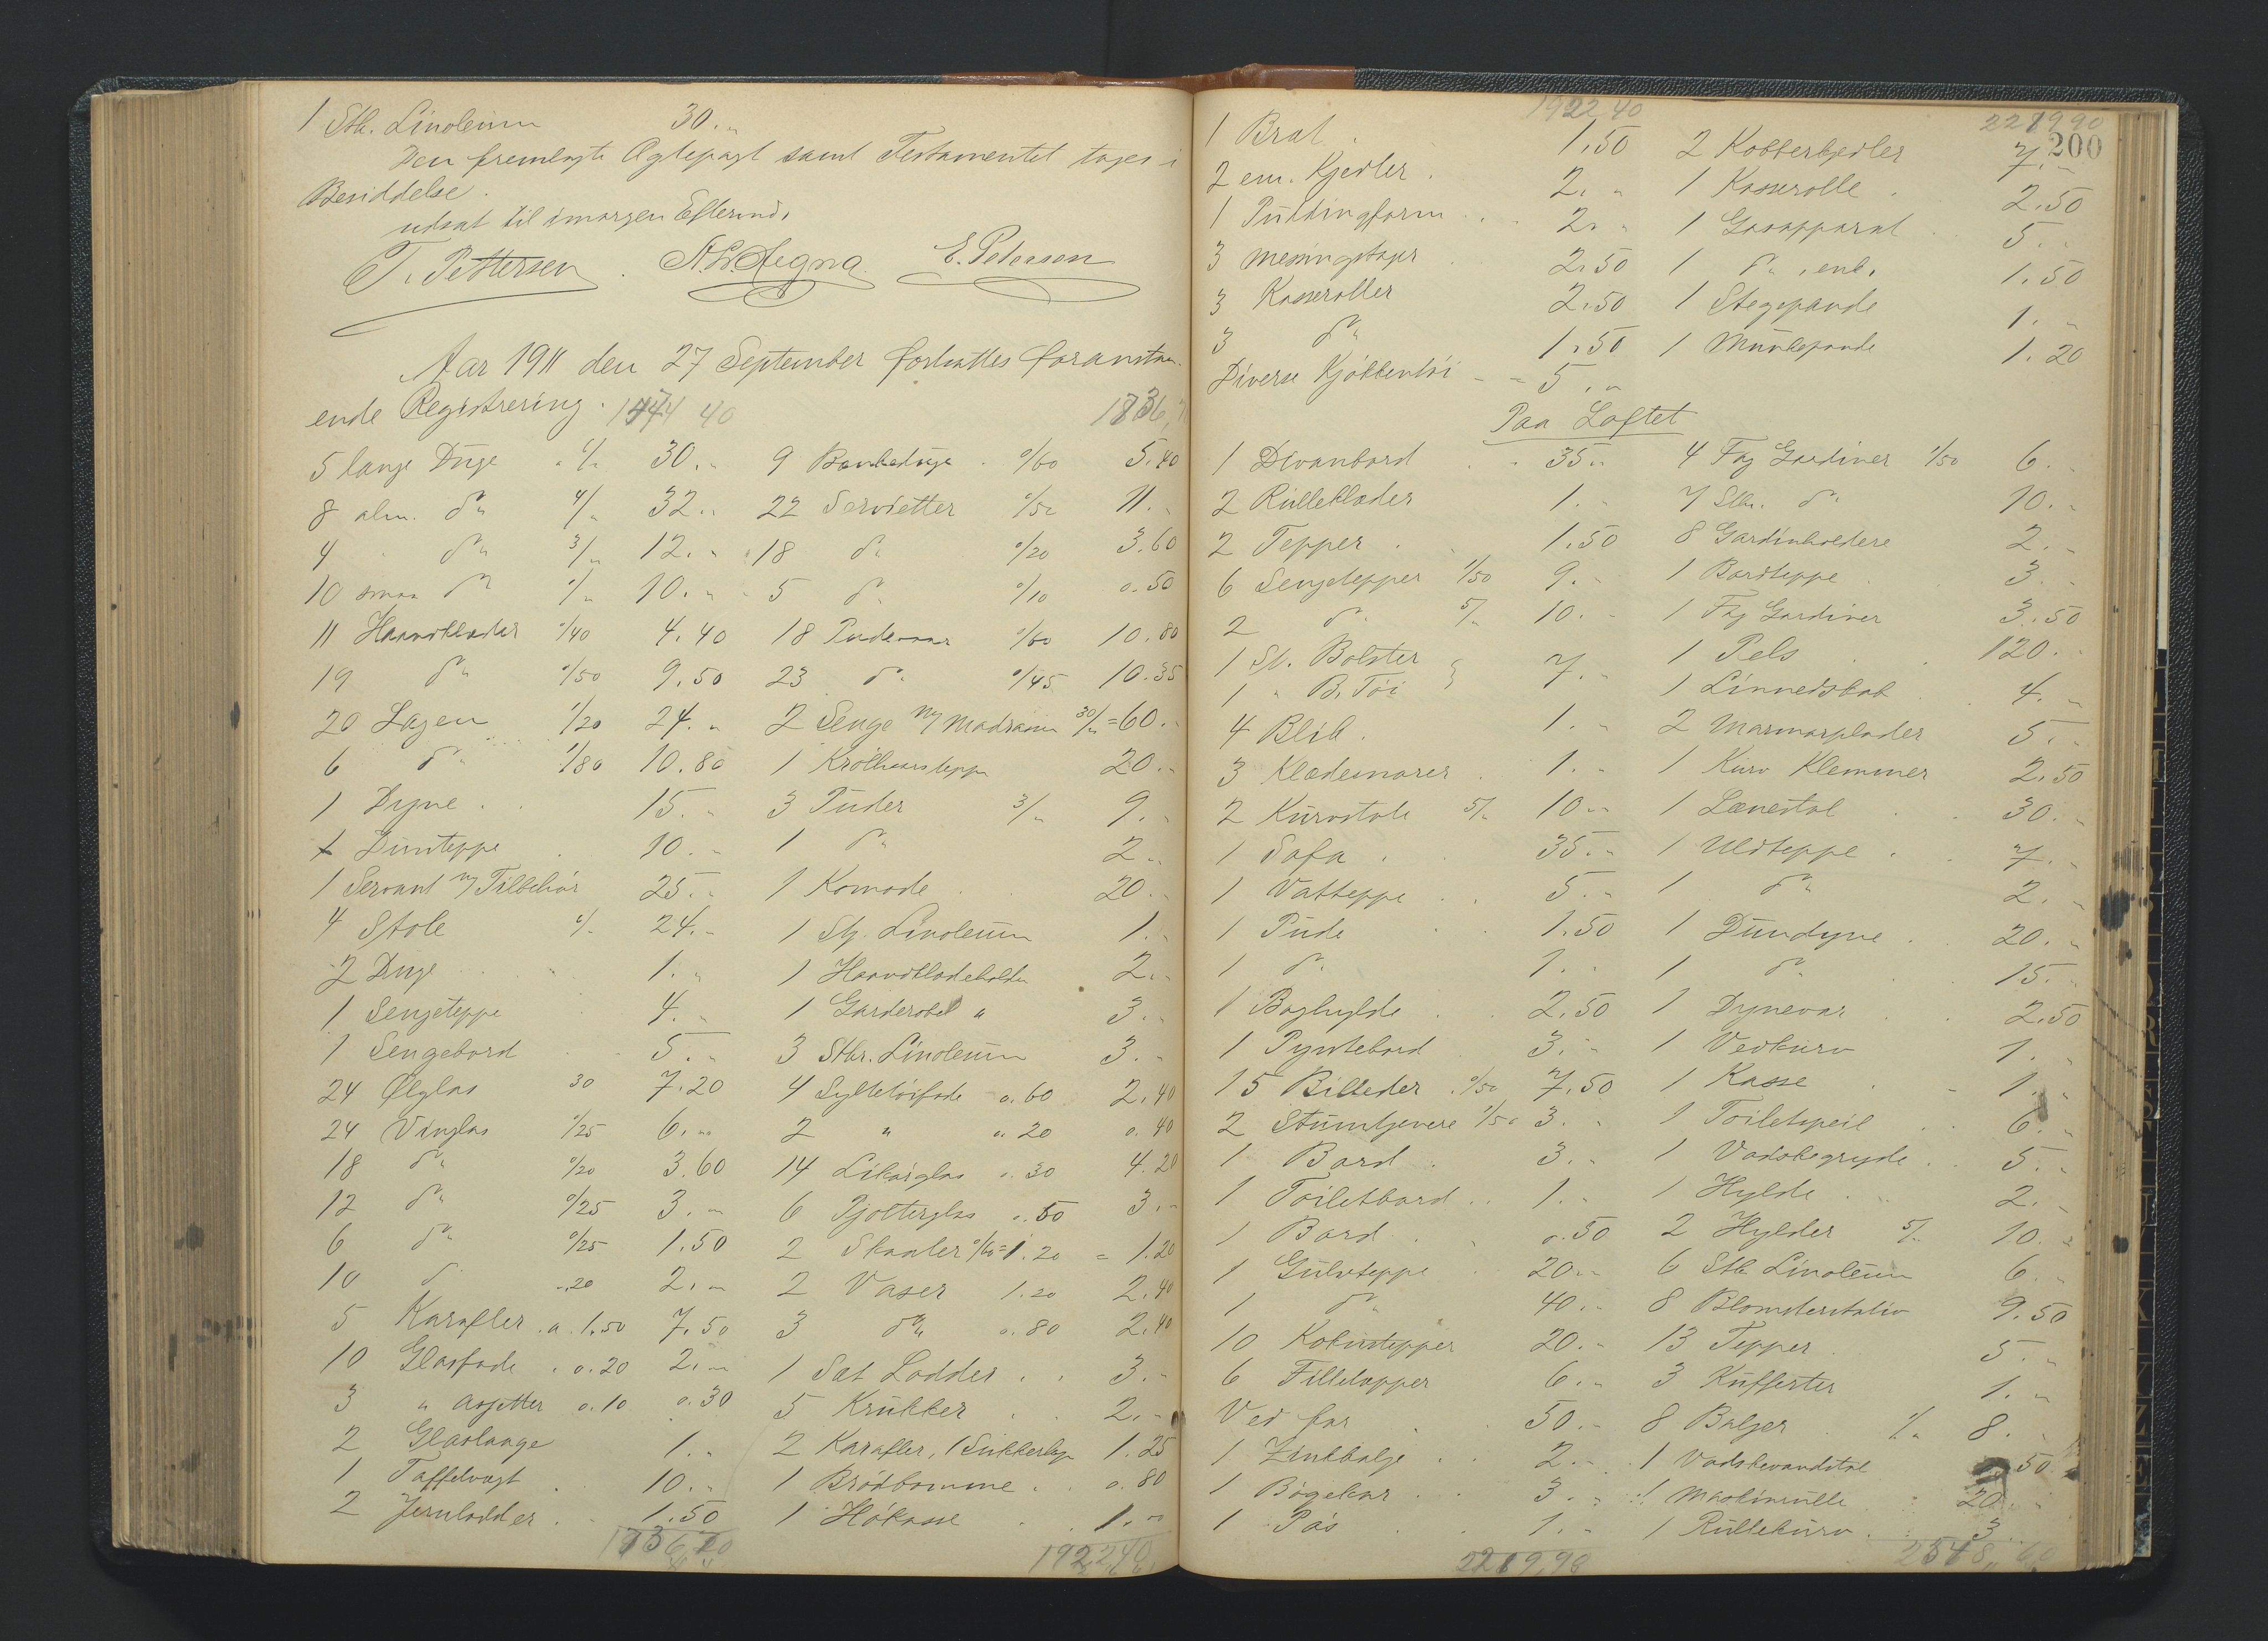 1 Stk. Linoleum 30."
Den fremlagte Ægtepagt samt Testamentet tages i
Besiddelse.
udsat til imorgen Eftermd.
T. Pettersen. E. Petersen
Aar 1911 den 27 September fortsattes foranstaa-
ende Registrering. 1474 40 1736,70
5 lange Duge 6/" 30." 9 Bankeduge 0/60 5.40
8 alm. do 4/" 32." 22 Servietter 0/50 11."
4 " do 3/" 12." 18 do 0/20 3.60
10 smaa do 1/" 10." 5 do 0/10 0.50
11 Haandklæder 0/40 4.40 18 Pudevaar 0/60 10.80
19 do 0/50 9.50 23 do 0/45 10.35
20 Lagen 1/20 24." 2 Senge m/ Madrasser 30/" = 60."
6 do 1/80 10.80 1 Krølhaarsteppe 20."
1 Dyne 15." 3 Puder 3/" 9."
1 Dunteppe 10." 1 do 2."
1 Servant m/ Tilbehør 25." 1 Komode 20."
4 Stole 6/" 24." 1 Stk. Linoleum 1."
2 Duge 1." 1 Haandklædeholder 2."
1 Sengeteppe 4." 1 Garderobe " 3."
1 Sengebord 5." 3 Stkr. Linoleum 3."
24 Ølglas 30 7.20 4 Syltetøifade 0.60 2.40
24 Vinglas 0/25 6." 2 " 0.20 0.40
18 do 0/20 3.60 14 Likørglas 0.30 4.20
12 do 0/25 3." 6 Pjolterglas 0.50 3."
6 do 0/25 1.50 2 Skaaler 0/60 = 1.20 = 1.20
10 do 0.20 2." 2 Vaser 1.20 2.40
5 Karafler a 1.50 7.50 3 do 0.80 2.40
10 Glasfade 0.20 2." 1 Sat Lodder 3."
3 " Asjetter 0.10 0.30 5 Krukker 2."
2 Glaslaage 1." 2 Karafler, 1 1.25
1 Taffelvægt 10." 1 Brødbomme 0.80
2 Jernlodder 1.50 1 Høkasse 1."
1736,70 1922,40
1922 40 2219 90
200
1 Bræt 1.50 2 Kobberkjedler 7."
2 em. Kjedler 2." 1 Kasserolle 2.50
1 Puddingform 2." 1 Gasapparat 5."
3 Messingstager 2.50 1 do, enk. 1.50
3 Kasseroller 2.50 1 Stegepande 1."
3 do 1.50 1 Munkepande 1.20
Diverse Kjøkkentøi 5."
Paa Loftet
1 Divanbord 35." 4 Fag Gardiner 1/50 6."
2 Rulleklæder 1." 7 Stkr. do 10."
2 Tepper 1.50 8 Gardinholdere 2."
6 Sengetepper 1/50 9." 1 Bordteppe 3."
2 do 5/" 10." 1 Fag Gardiner 3.50
1 St. Bolster } 7." 1 Pels 120."
1 " B. Tøi 1 Linnedskab 4."
4 Blik 1." 2 Marmorplader 5."
3 1." 1 Kurv Klemmer 2.50
2 Kurvstole 5/" 10." 1 Lænestol 30."
1 Sofa 35." 1 Uldteppe 7."
1 Vatteppe 5." 1 do 2."
1 Pude 1.50 1 Dundyne 20."
1 do 1." 1 do 15."
1 Boghylde 2.50 1 Dynevar 2.50
1 Pyntebord 3." 1 Vedkurv 1."
15 Billeder 0/50 7.50 1 Kasse 1."
2 Stumtjenere 1/50 3." 1 Toiletspeil 6."
1 Bord 3." 1 Vadskegryde 5."
1 Toiletbord 1." 1 Hylde 2."
1 Bord 0.50 2 Hylder 5/" 10."
1 Gulvteppe 20." 6 Stk Linoleum 6."
1 do 40." 8 Blomsterstativ 9.50
10 Kokustepper 20." 13 Tepper 5."
6 Filletepper 6." 3 Kufferter 1."
Ved for 50." 8 Baljer 1/" 8."
1 Zinkbalje 2." 1 Vadskevandstol 50
1 Bøgekar 3." 1 Maskinrulle 20."
1 Pøs 1." 1 Rullekurv 3."
2219,90